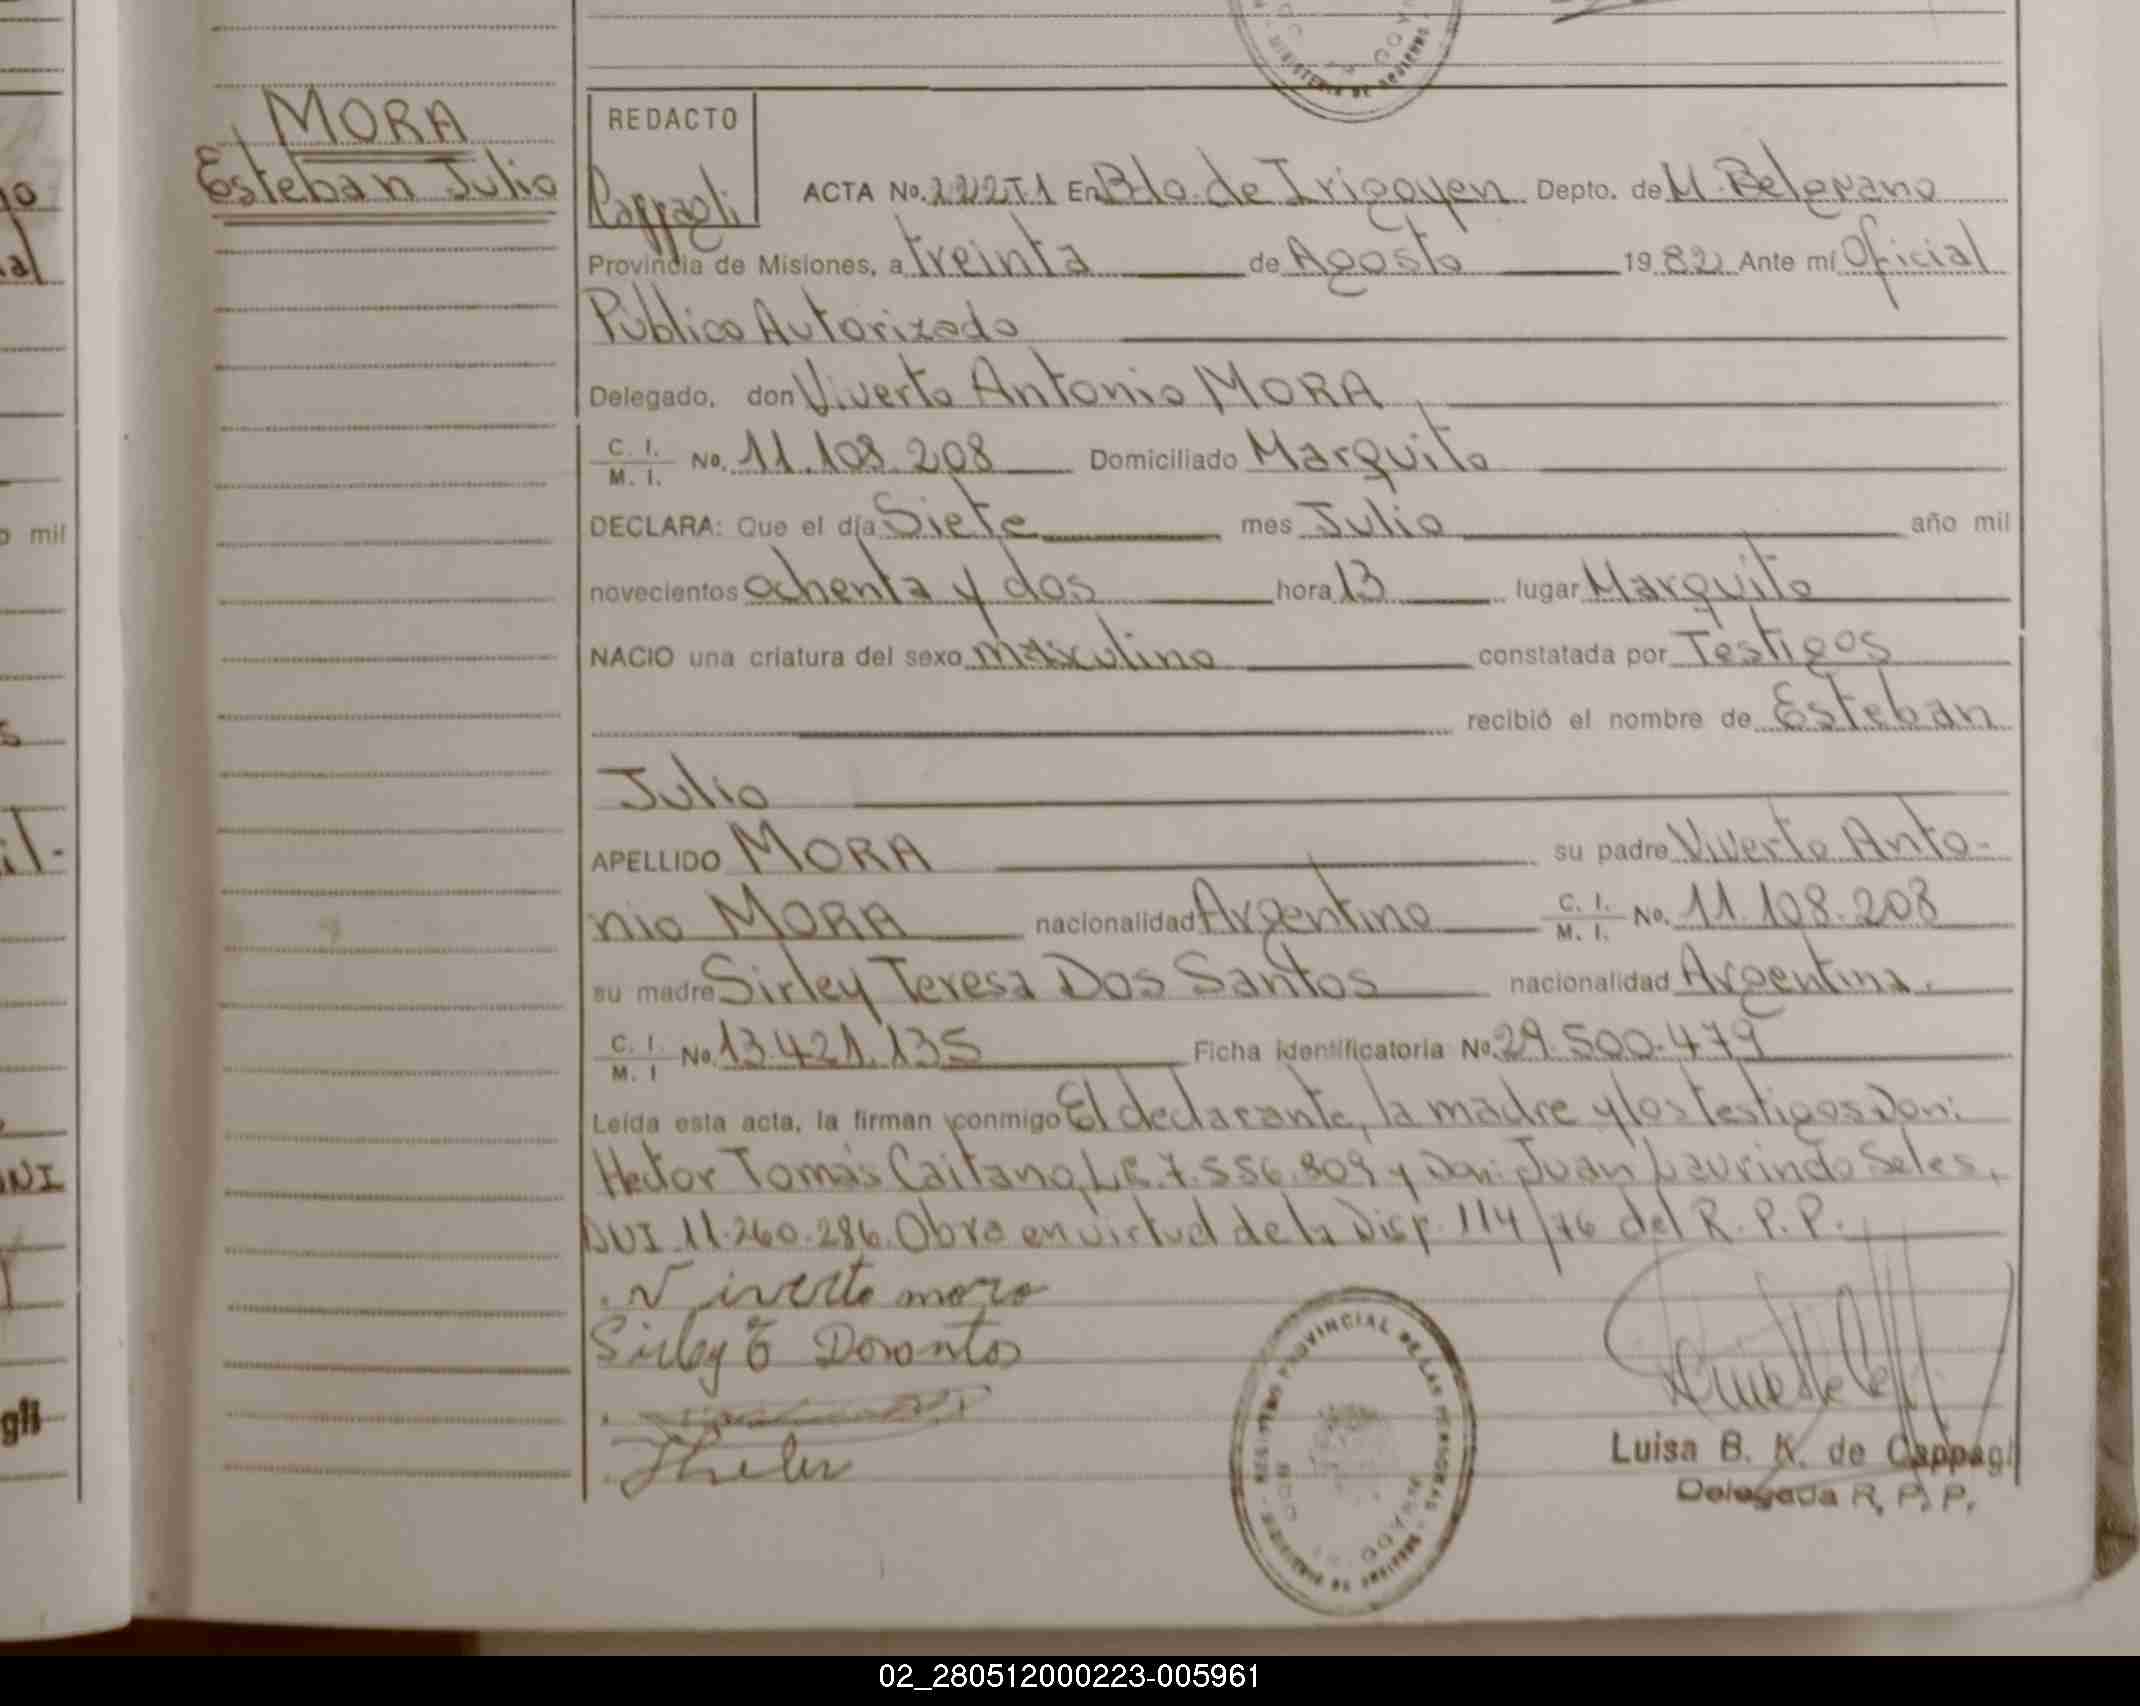 MORA
Esteban Julio
REDACTO
Cappagli
ACTA No. 222T1 En Bdo. de Irigoyen Depto. de M. Belgrano
Provincia de Misiones, a treinta de Agosto 1982 Ante mí Oficial
Público Autorizado
Delegado, don Viverto Antonio MORA
C. I. M. I. No. 11.108.208 Domiciliado Marquito
DECLARA: Que el día Siete mes Julio año mil
novecientos ochenta y dos hora 13 lugar Marquito
NACIO una criatura del sexo masculino constatada por Testigos
recibió el nombre de Esteban
Julio
APELLIDO MORA su padre Viverto Anto-
nio MORA nacionalidad Argentino C. I. M. I. No. 11.108.208
su madre Sirley Teresa Dos Santos nacionalidad Argentina.
C. I. M. I No. 13.421.135 Ficha identificatoria No. 29.500.479
Leída esta acta, la firman conmigo El declarante, la madre y los testigos Don:
Hector Tomás Caitano, L.E. 7.556.809 y Don: Juan Laurindo Seles,
DUI 11.260.286. Obro en virtud de la Disp. 114/76 del R. P. P.
Viverto mora
Sirley T Dosantos
REGISTRO PROVINCIAL DE LAS PERSONAS
Luisa B. K. de Cappagli
Delegada R. P. P.
mil
gli
02_280512000223-005961